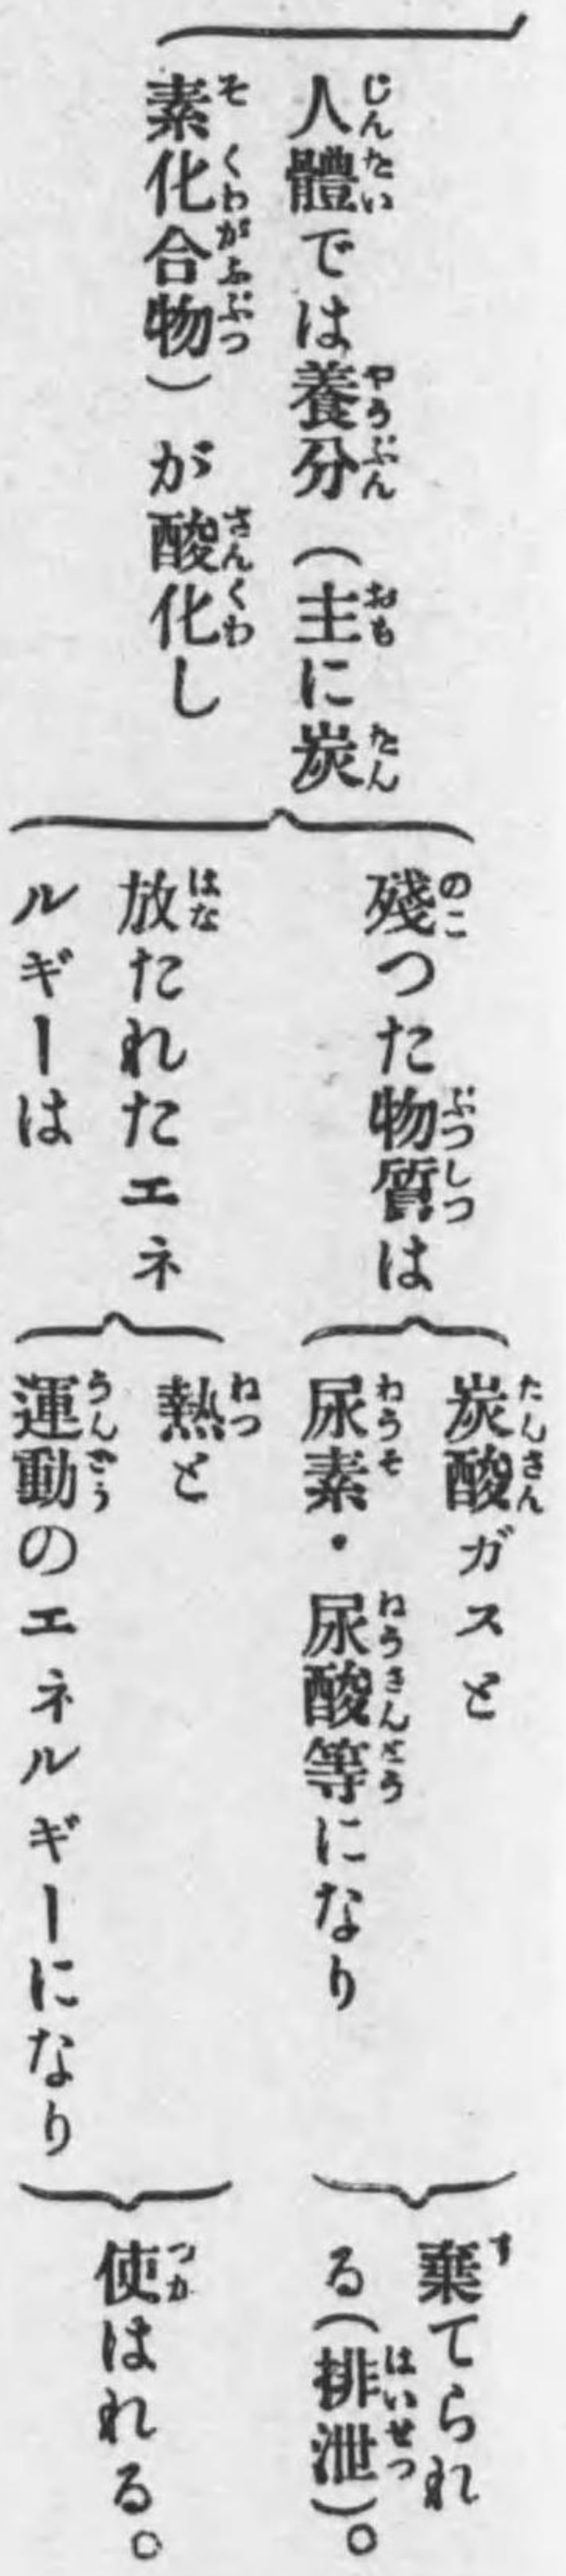 人體では養分（主に炭
素化合物）が酸化し
殘つた物質は
炭酸ガスと
尿素・尿酸等になり
棄てられ
る（排泄）。
放たれたエネ
ルギーは
熱と
運動のエネルギーになり
使はれる。